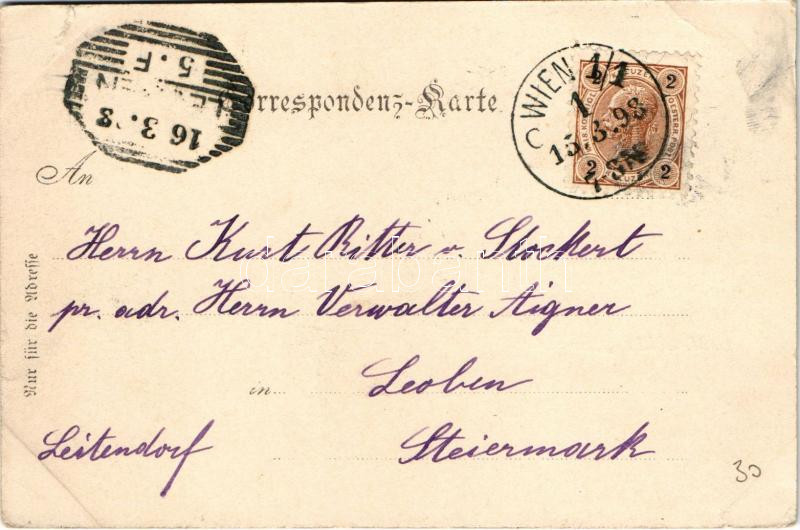 Correspondenz-Karte
WIEN 1/1
1
15.3.98
7-8N
2 2
2 2
LEOBEN
16.3.98
5.F
An
Herrn Kurt Ritter v. Stockert
pr. adr. Herrn Verwalter Aigner
in Leoben
Leitendorf Steiermark
Nur für die Adresse
30
darabanth